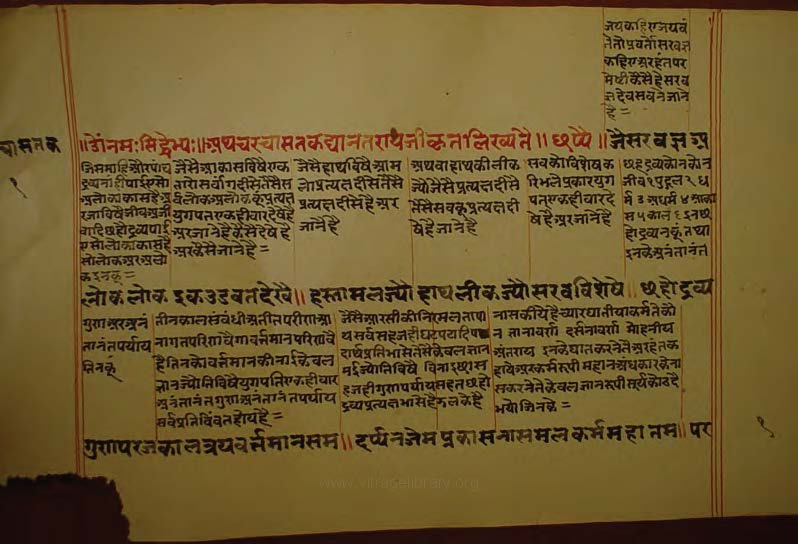 जयकहिएजयवं
तेतोप्रवर्तोसरवज्ञ
कहिएअरहंतपर
मेष्टीकैसेहैसरव
ज्ञदेवसवनैजाने
है=
चासतक
१
॥उोंनमःसिद्धेभ्यः॥अथचरचासतकद्यानतरायजीकृतलिख्यते॥छप्पै॥जैसरवज्ञअ
जिसमाहिऔरपांच
द्रव्यनाहीपाईऐसो
अलोकाकासहैअ
रजाविषैजीवअजी
वादिछहोद्रव्यपाई
एसोलोकाकासहै
सोलोकअरअलो
कइनकू=
जैसेआकासविषैएक
तारोसर्वांगदीसैतैसैस
र्वलोकअलोककूंप्रत्यक्ष
युगपतएकहीवारदेषैहै
अरजानैहैकैसेदेषैहै
अरकैसेजानैहै=
जैसेहाथविषैआम
लोप्रत्यक्षदीसैतैसे
प्रत्यक्षदीसैहैअर
जानैहै
अथवाहाथकीलीक
ज्योंजैसैप्रत्यक्षदीसै
तैसैसवकूंप्रत्यक्षदी
षैहैजानैहै
सवकोविशेषक
रिभलेप्रकारयुग
पतएकहीवारदे
षैहैअरजानैहै
छहद्रव्यकोनकोन
जीव१पुद्गल२ध
र्म३अधर्म४आका
स५काल६इनछ
होद्रव्यनकूंतथा
इनकेअनंतानंत
लोकलोकइकउडवतदेखै॥हस्तामलज्योंहाथलीकज्योंसरवविशेषै॥छहोद्रव्य
गुणअरअनं
तानंतपर्याय
तिनकूं
तीनकालसंवंधीअतीतपरीणाआ
नागतपरिणवैगावर्तमानपरिणवै
हैतिनकोवर्तमानकीनाईकेवल
ज्ञानज्योतिविषैयुगपतिएकहीवार
अनंतानंतगुणअनंतानंतपर्याय
सर्वप्रतिविंवतहोयहै=
जैसेआरसीकीनिरमलताषा
यसर्वसहजहीघटपटादिपदा
दार्थप्रतिभासैतैसैकेवलज्ञान
मईज्योतिविषैविनाइछास
हजहीगुणपर्यायसहतछहो
द्रव्यप्रत्यक्षभासैहैझलकैहै
नासकीयेहैच्यारघातीयाकर्मतेको
नज्ञानावर्णीदर्सनावर्णीमोहनीय
अंतरायइनकेघातकरनेतैअरहंतक
हायेअरकर्मरूपीमहानअंधकारकेना
सकरनेतैकेवलज्ञानरूपीसूर्यकोउदै
भयोजिनकै=
गुणपरजकालत्रयवर्तमानसम॥दर्प्पनजेमप्रकासनासमलकर्ममहातम॥पर
१
www.vitragelibrary.org